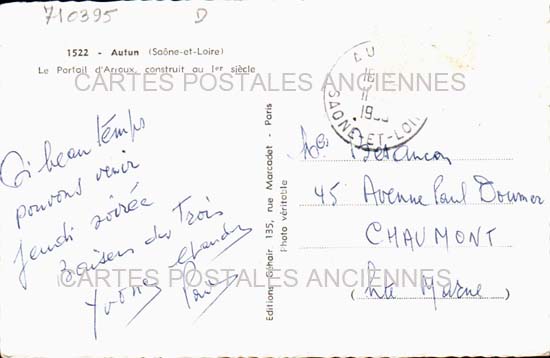 710395 D
1522 - Autun (Saône-et-Loire)
Le Portail d'Arroux, construit au 1er siècle
CARTES POSTALES ANCIENNES
Si beau temps
pouvons venir
jeudi soirée
baisers des Trois
Yvonne
Editions Behair, 135, rue Marcadet - Paris
Photo véritable
SAONE-ET-LOIRE
Besançon
45 Avenue Paul Doumer
CHAUMONT
(Hte Marne)
CARTES POSTALES ANCIENNES